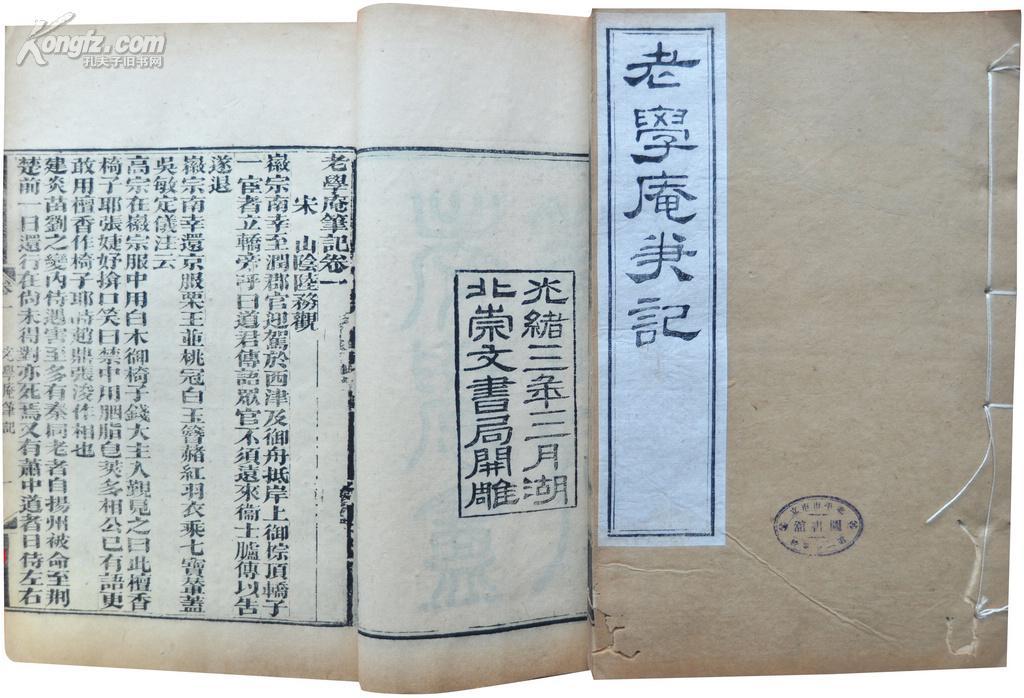 老學庵筆記
光緒三年三月湖
北崇文書局開雕
老學庵筆記卷一
宋 山陰陸務觀
徽宗南幸至潤郡官迎駕於西津及御舟抵岸上御椶頂轎子
一宦者立轎旁呼曰道君傳語眾官不須遠來衞士臚傳以告
遂退
徽宗南幸還京服栗玉並桃冠白玉簪赭紅羽衣乘七寶輦蓋
吳敏定儀注云
高宗在徽宗服中用白木御椅子錢大主入覲見之曰此檀香
椅子耶張婕妤掩口笑曰禁中用胭脂皂莢多相公已有語更
敢用檀香作椅子耶時趙鼎張浚作相也
建炎苗劉之變內侍遇害至多有秦同老者自揚州被命至荊
楚前一日還行在尚未得對亦死焉又有蕭中道者日侍左右
北平市市立
圖書館
Kongfz.com
孔夫子旧书网